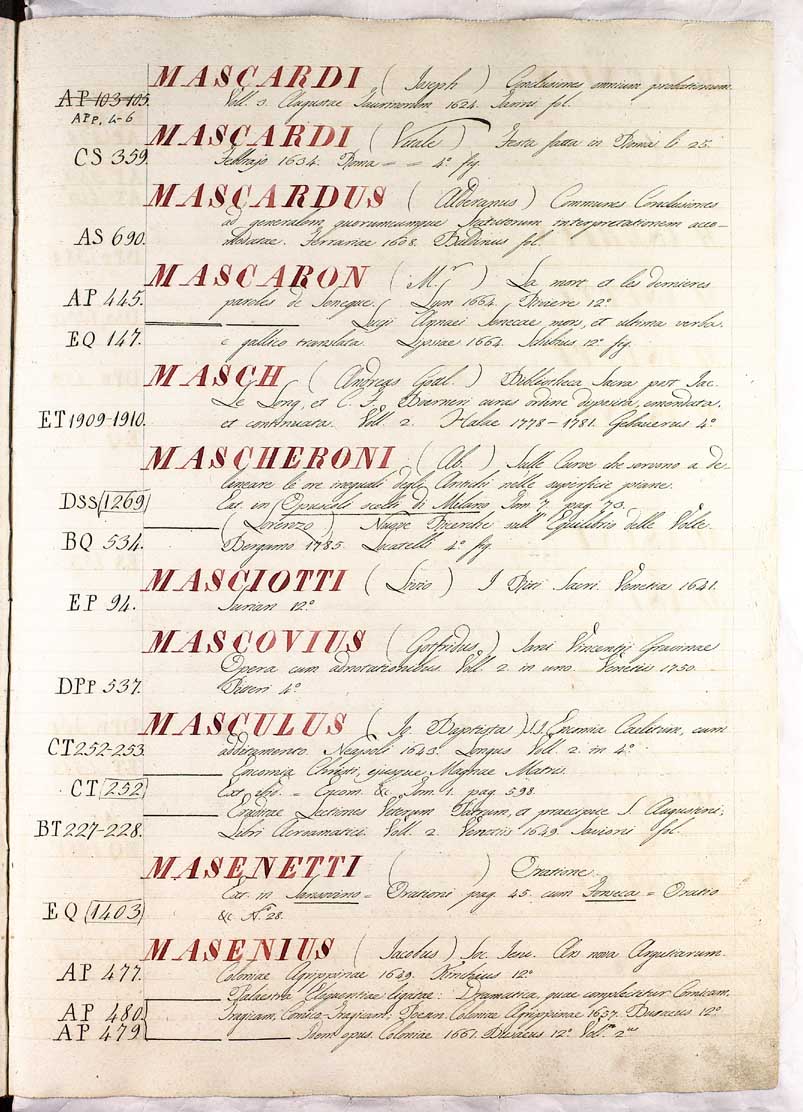 MASCARDI ( Joseph ) Conclusiones omnium probationum
AP 103-105. Voll. 3. Augustae Taurinorum 1624. Tarini fol.
APp. 4-6
MASCARDI ( Vitale ) Festa fatta in Roma li 25.
CS 359. Febbrajo 1634. Roma = = 4.º fig.
MASCARDUS ( Alderanus ) Communes Conclusiones
ad generalem quorumcumque Statutorum interpretationem acco-
AS 690. modatae. Ferrariae 1608. Baldinus fol.
MASCARON ( M.r ) La mort, et les dernieres
AP 445. paroles de Seneque. Lyon 1664. Riviere 12.º
Lucii Annaei Senecae mors, et ultima verba
EQ 147. e gallico translata. Lipsiae 1664. 12.º fig.
MASCH ( Andreas Gotl. ) Bibliotheca Sacra post Jac.
Le Long, et C. F. Boerneri curas ordine disposita, emendata,
ET 1909-1910. et continuata. Voll. 2. Halae 1778-1781. Gebaverus 4.º
MASCHERONI ( Ab. ) Sulle Curve che servono a de-
lineare le ore ineguali degli Antichi nelle superficie piane.
DSS 1269 Ext. in Opuscoli scelti di Milano, Tom. 7. pag. 73.
( Lorenzo ) Nuove Ricerche sull' Equilibrio delle Volte.
BQ 534. Bergamo 1785. Locatelli 4.º fig.
MASCIOTTI ( Livio ) I Riti Sacri. Venetia 1641.
EP 94. Surian 12.º
MASCOVIUS ( Gotfridus ) Jani Vincentii Gravinae
Opera cum adnotationibus. Voll. 2 in uno. Venetiis 1750.
DPp 537. Piteri 4.º
MASCULUS ( Jo. Baptista ) S.J. Encomia Caelitum, cum
CT 252-253 additamento. Neapoli 1643. Longus Voll. 2. in 4.º
Encomia Christi, ejusque Magnae Matris.
CT 252 Ext. = Encom. &c. Tom. 1. pag. 598.
Eruditae Lectiones Veterum Patrum, et praecipue S. Augustini,
BT 227-228. Libri Acroamatici. Voll. 2. Venetiis 1649. fol.
MASENETTI ( ) Oratione.
Ext. in Sansovino = Orationi pag. 45. cum Fonseca = Oratio
EQ 1403 &c. N.º 28.
MASENIUS ( Jacobus ) Soc. Jesu. Ars nova Argutiarum.
AP 477. Coloniae Agrippinae 1649. Kinchius 12.º
Palaestra Eloquentiae ligatae: Dramatica, quae complectitur Comicam,
AP 480. Tragicam, Comico-Tragicam, Poesin. Coloniae Agrippinae 1657. Busaeus 12.º
AP 479 Idem opus. Coloniae 1661. Busaeus 12.º Vol.